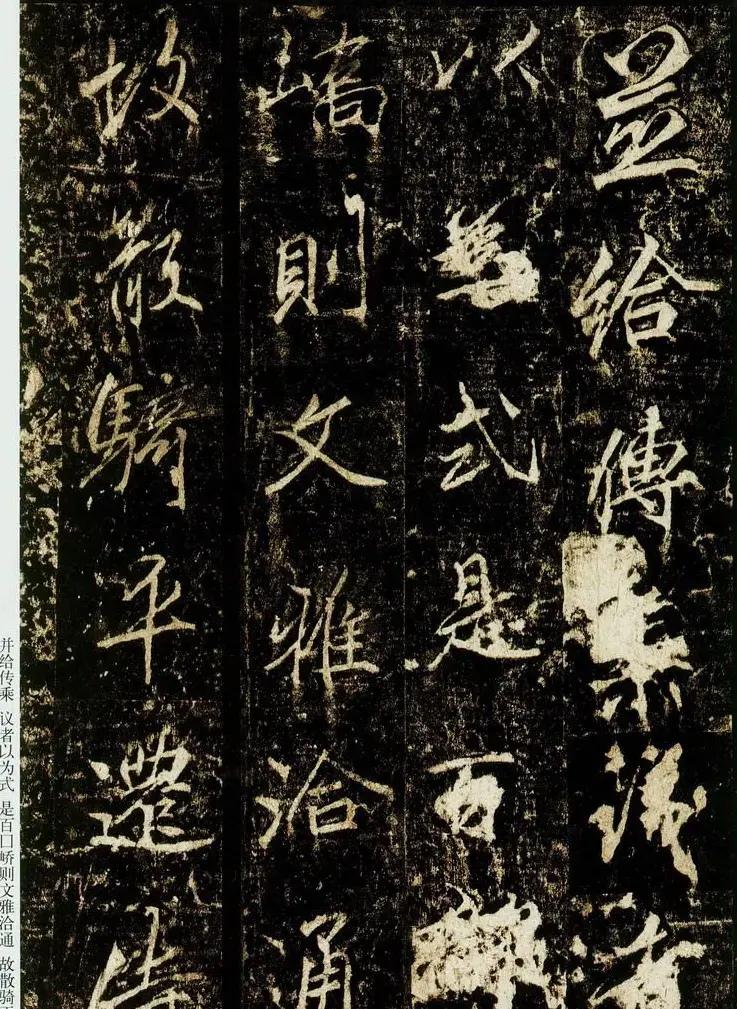 並給傳乘議者
以為式是百
嶠則文雅洽通
故散騎平遷
并给传乘 议者以为式 是百囗峤则文雅洽通 故散骑